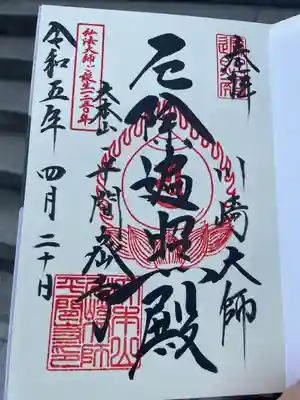 奉拝
川崎大師
厄除遍照殿
大本山
平間寺
弘法大師ご誕生一二五〇年
令和五年四月二十日
大本山
川崎大師
平間寺印